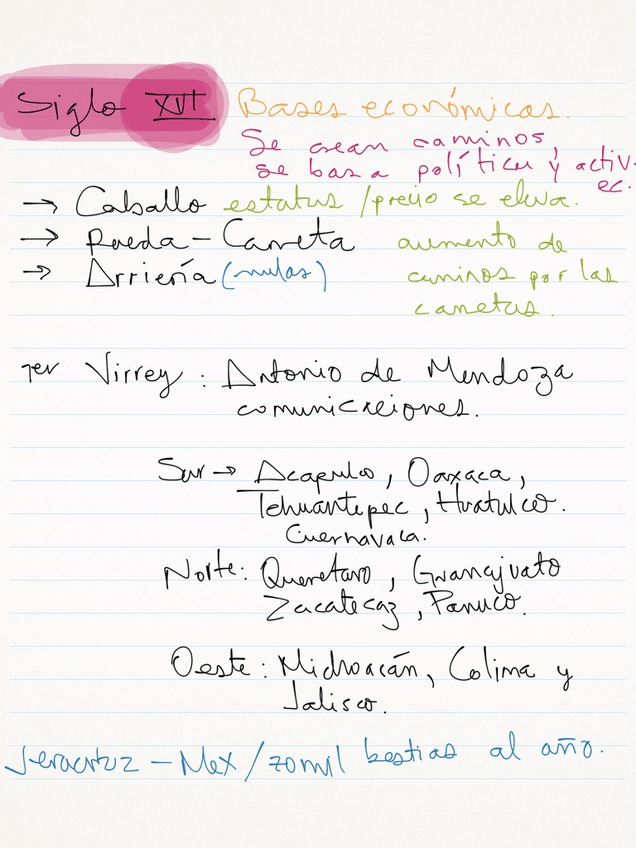 Siglo XVI Bases económicas.
Se crean caminos,
se basa política y activ.
ec.
→ Caballo estatus / precio se eleva.
→ Rueda – Carreta aumento de
→ Arriería (mulas) caminos por las
carretas.
1er Virrey : Antonio de Mendoza
comunicaciones.
Sur → Acapulco, Oaxaca,
Tehuantepec, Huatulco.
Cuernavaca.
Norte: Queretaro, Guanajuato
Zacatecaz, Panuco.
Oeste : Michoacán, Colima y
Jalisco.
Veracruz – Mex / 70 mil bestias al año.